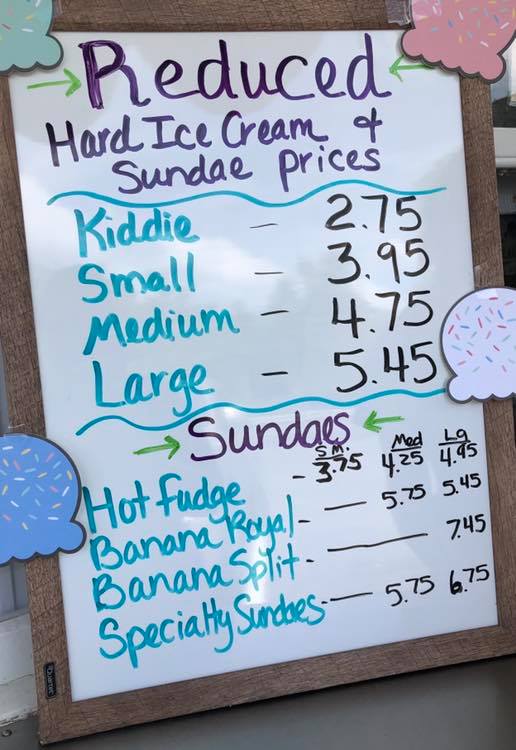 Reduced
Hard Ice Cream &
Sundae prices
Kiddie - 2.75
Small - 3.95
Medium - 4.75
Large - 5.45
Sundaes
SM. Med Lg
Hot fudge - 3.75 4.25 4.95
Banana Royal - — 5.75 5.45
Banana Split - — 7.45
Specialty Sundaes - — 5.75 6.75
Quartet